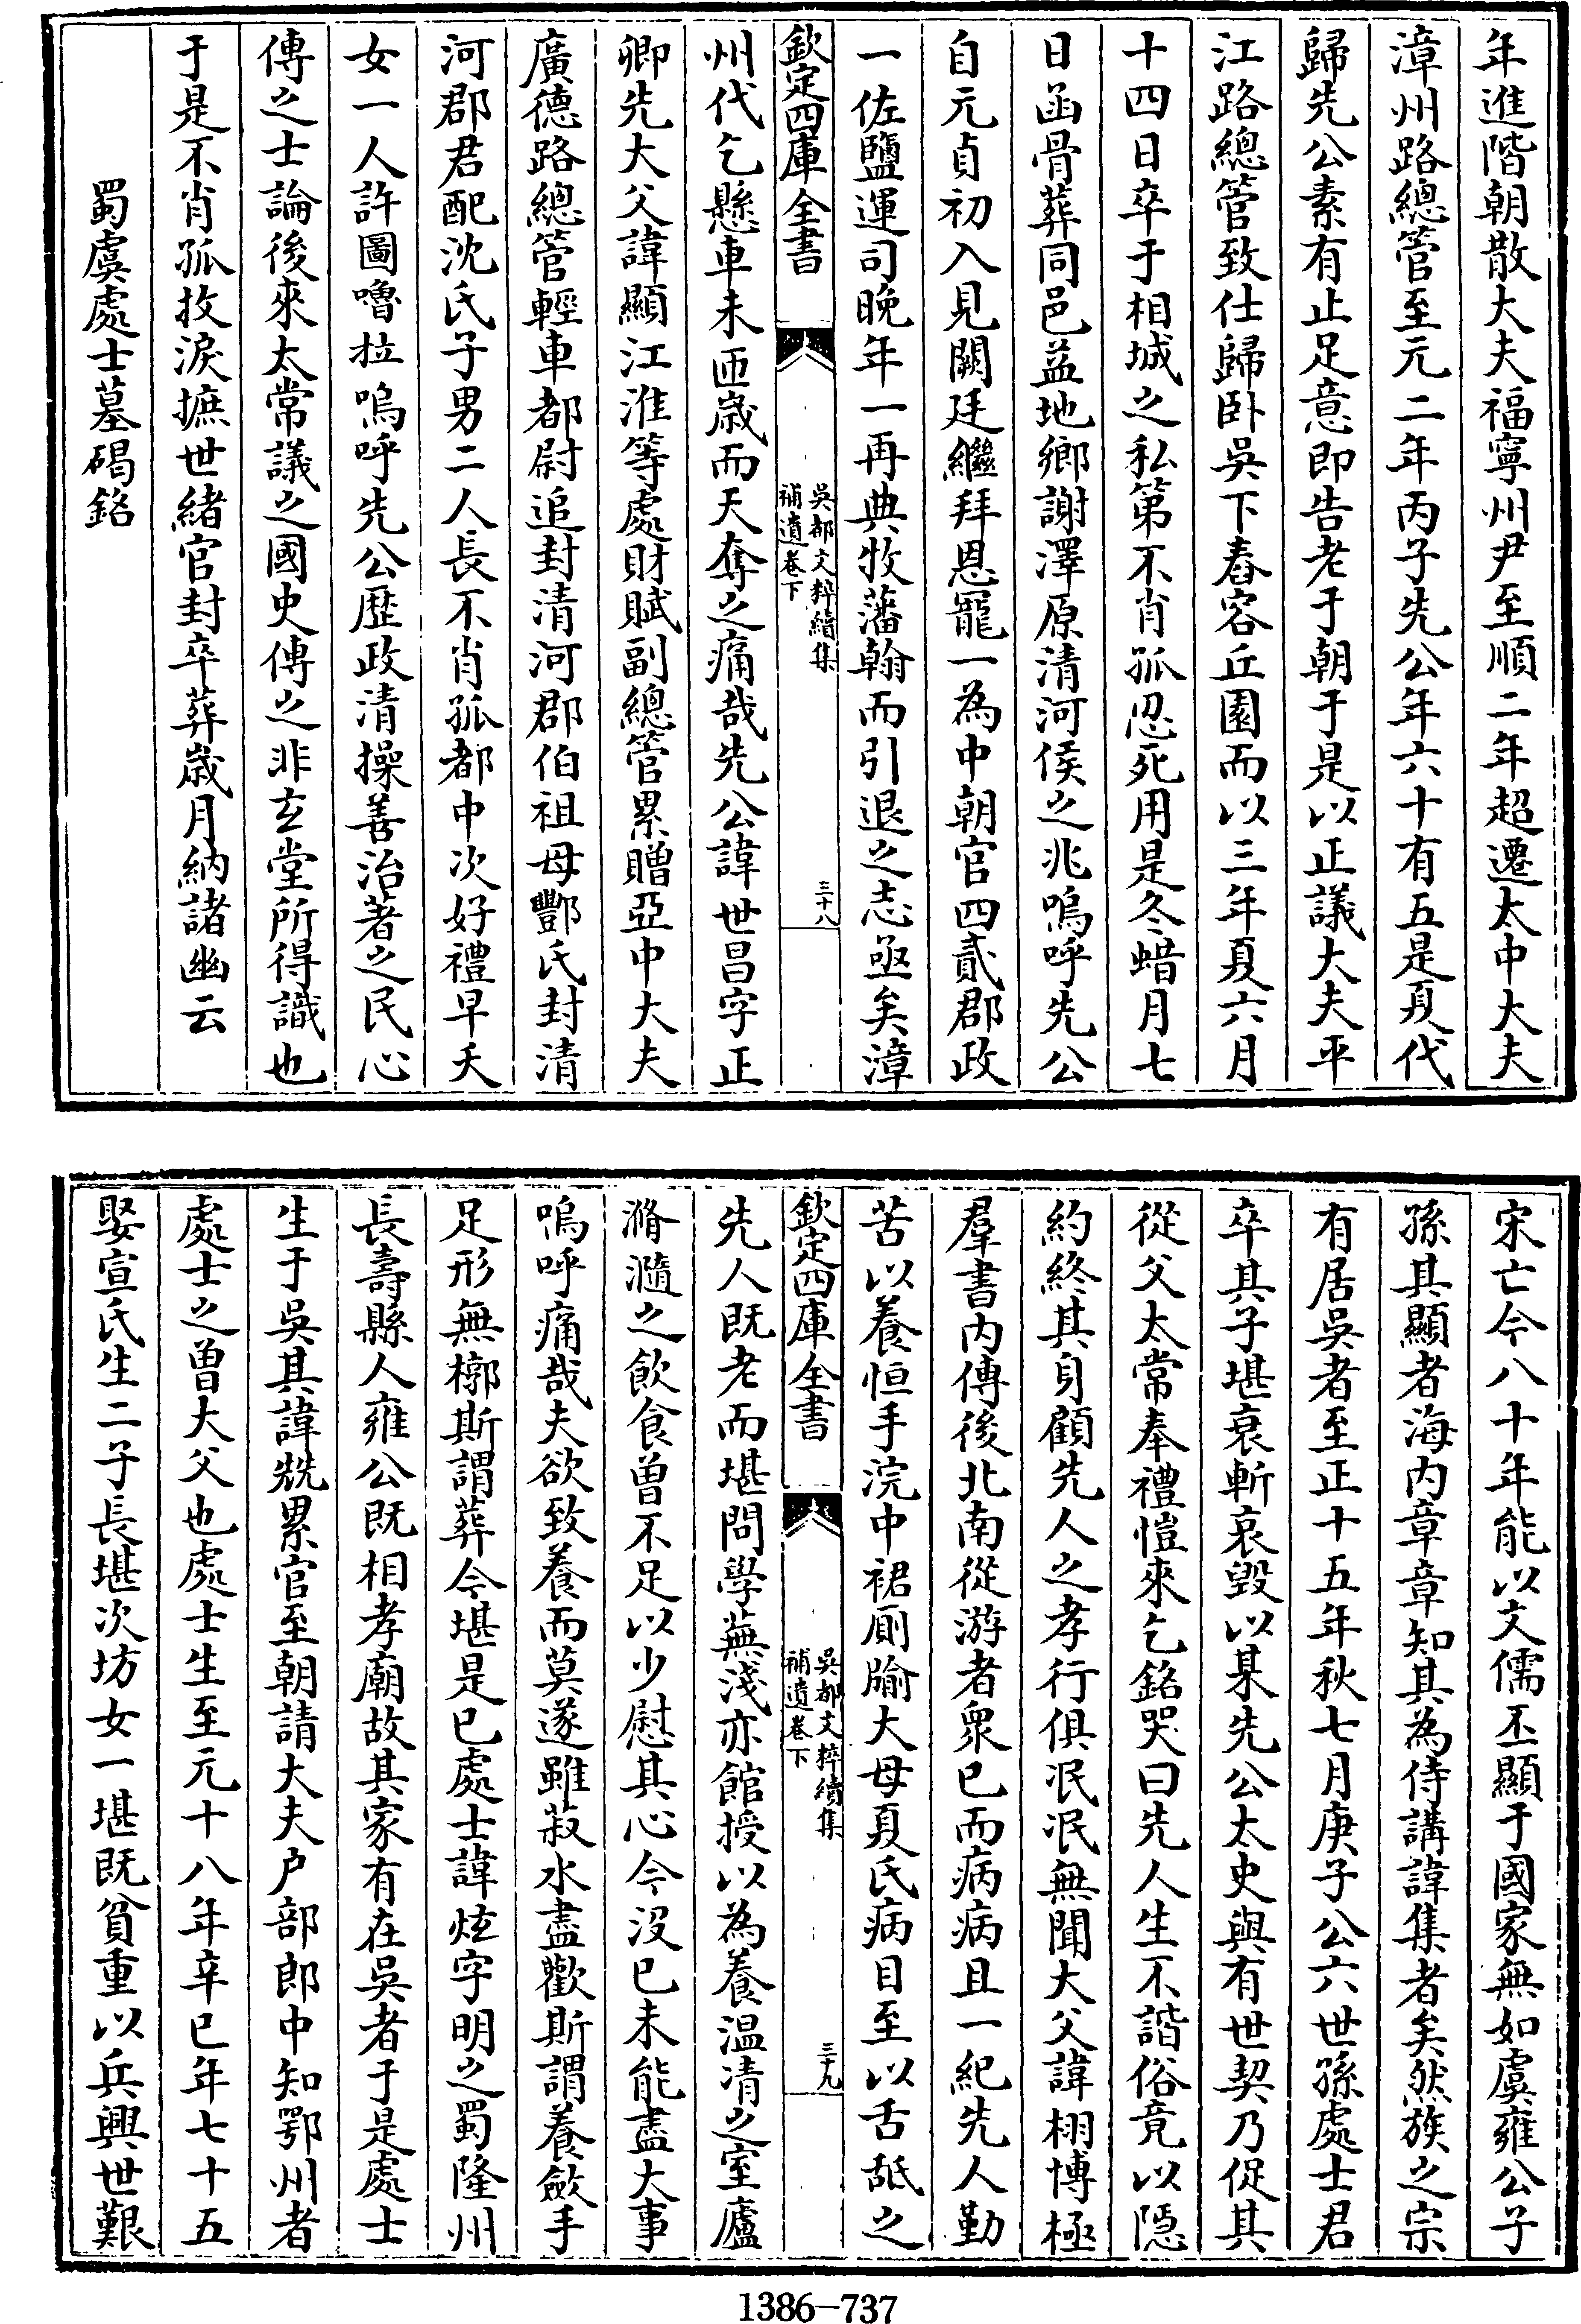 年進階朝散大夫福寧州尹至順二年超遷太中大夫
漳州路總管至元二年丙子先公年六十有五是夏代
歸先公素有止足意即告老于朝于是以正議大夫平
江路總管致仕歸卧吳下舂容丘園而以三年夏六月
十四日卒于相城之私第不肖孤忍死用是冬蜡月七
日函骨葬同邑益地鄉謝澤原清河侯之兆嗚呼先公
自元貞初入見闕廷繼拜恩寵一為中朝官四貳郡政
一佐鹽運司晚年一再典牧藩翰而引退之志亟矣漳
欽定四庫全書
吳都文粹續集
補遺卷下
三十八
州代乞懸車未匝歲而天奪之痛哉先公諱世昌字正
卿先大父諱顯江淮等處財賦副總管累贈亞中大夫
廣德路總管輕車都尉追封清河郡伯祖母酆氏封清
河郡君配沈氏子男二人長不肖孤都中次好禮早夭
女一人許圖嚕拉嗚呼先公歷政清操善治著之民心
傳之士論後來太常議之國史傳之非玄堂所得識也
于是不肖孤抆淚摭世緒官封卒葬歲月納諸幽云
蜀虞處士墓碣銘
宋亡今八十年能以文儒丕顯于國家無如虞雍公子
孫其顯者海内章章知其為侍講諱集者矣然族之宗
有居吳者至正十五年秋七月庚子公六世孫處士君
卒其子堪衰斬哀毀以某先公太史與有世契乃促其
從父太常奉禮愷來乞銘哭曰先人生不諧俗竟以隱
約終其身顧先人之孝行俱泯泯無聞大父諱栩博極
羣書内傳後北南從游者衆已而病病且一紀先人勤
苦以養恒手浣中裙厠牏大母夏氏病目至以舌舐之
欽定四庫全書
吳都文粹續集
補遺卷下
三十九
先人既老而堪問學蕪淺亦館授以為養温凊之室廬
滫瀡之飲食曾不足以少慰其心今沒已未能盡大事
嗚呼痛哉夫欲致養而莫遂雖菽水盡歡斯謂養斂手
足形無槨斯謂葬今堪是已處士諱炫字明之蜀隆州
長壽縣人雍公既相孝廟故其家有在吳者于是處士
生于吳其諱兟累官至朝請大夫户部郎中知鄂州者
處士之曾大父也處士生至元十八年辛巳年七十五
娶宣氏生二子長堪次坊女一堪既貧重以兵興世艱
1386—737